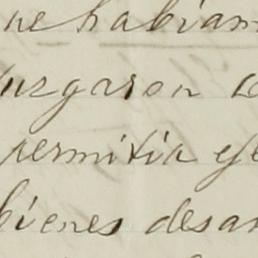 ue habian
urgaron
permitia efe
bienes desa